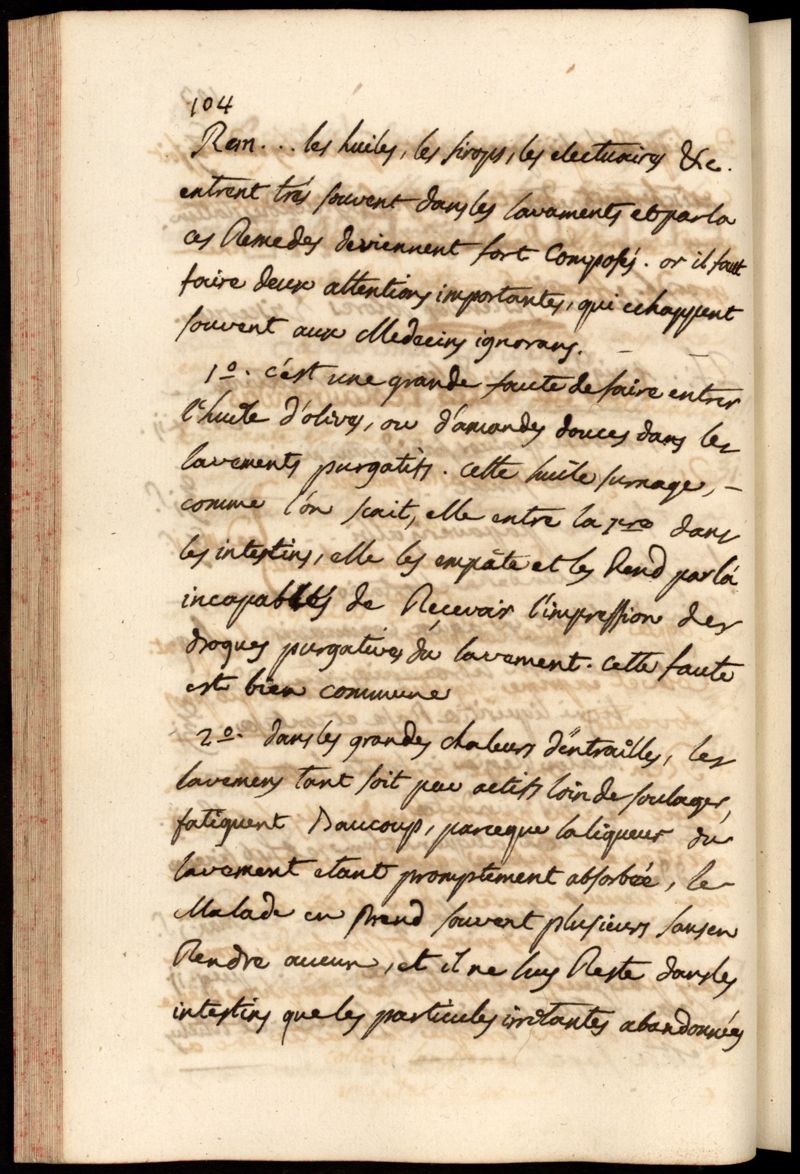 104
Rem... les huiles, les sirops, les electuaires &c.
entrent très souvent dans les lavaments et par la
ces Remedes deviennent fort Composés. or il faut
faire deux attentions importantes, qui echappent
souvent aux Medecins ignorans. — —
1º. c'est une grande faute de faire entrer
l'huile d'olives, ou d'amandes douces dans les
lavements purgatifs. cette huile surnage, —
comme l'on scait, elle entre la 1ere dans
les intestins, elle les empâte et les Rend par là
incapables de Recevoir l'impression des
drogues purgatives du lavement. cette faute
est bien commune
2º. dans les grandes chaleurs d'entrailles, les
lavemens tant soit peu actifs loin de soulager,
fatiguent Baucoup, parceque la liqueur du
lavement etant promptement absorbée, le
Malade en Prend souvent plusieurs sans en
Rendre aucun, et il ne luy Reste dans les
intestins que les particules irritantes abandonnées